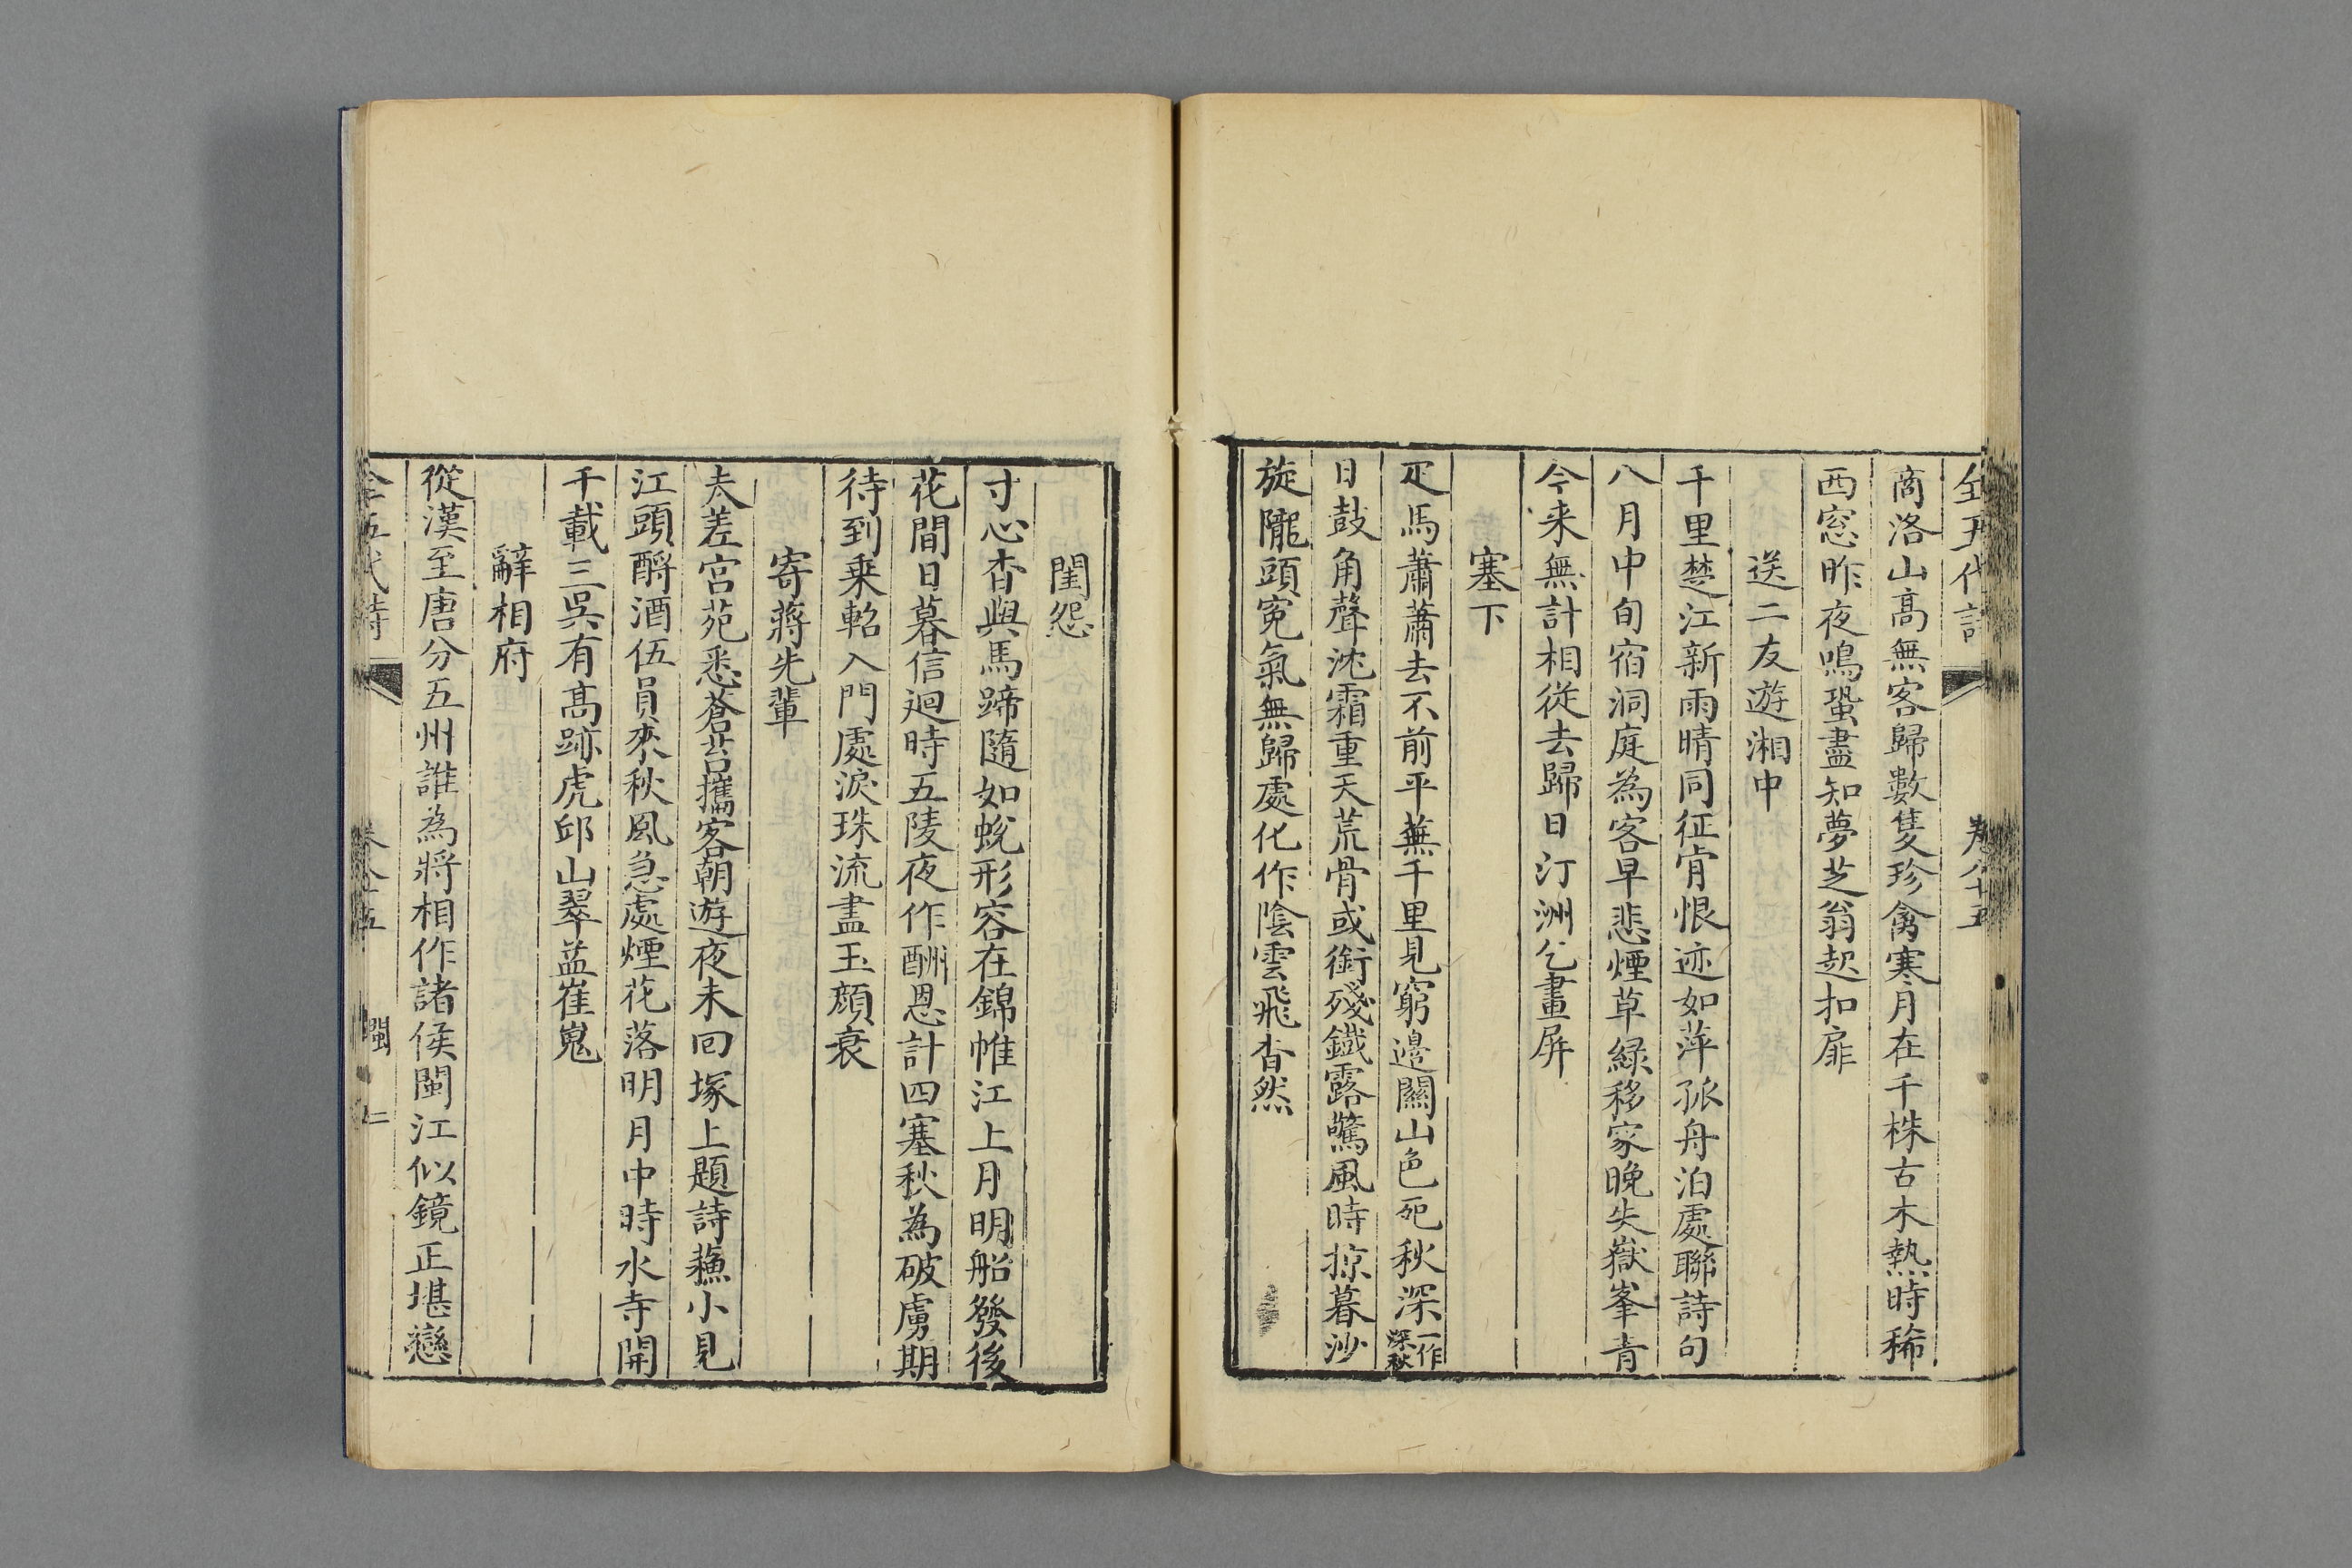 全五代詩 卷八十五
商洛山高無客歸數隻珍禽寒月在千株古木熱時稀
西窓昨夜鳴蛩盡知夢芝翁起扣扉
送二友遊湘中
千里楚江新雨晴同征肯恨迹如萍孤舟泊處聯詩句
八月中旬宿洞庭為客早悲煙草綠移家晚失嶽峯青
今来無計相從去歸日汀洲乞畫屏
塞下
疋馬蕭蕭去不前平蕪千里見窮邊關山色死秋深一作深秋
日鼓角聲沈霜重天荒骨或銜殘鐵露驚風時掠暮沙
旋隴頭冤氣無歸處化作陰雲飛杳然
閨怨
寸心杳與馬蹄隨如蛻形容在錦帷江上月明船發後
花間日暮信迴時五陵夜作酬恩計四塞秋為破虜期
待到乘軺入門處淚珠流盡玉顏衰
寄蔣先輩
夫差宮苑悉蒼苔攜客朝遊夜未回塚上題詩蘓小見
江頭酹酒伍員來秋風急處煙花落明月中時水寺開
千載三吳有髙跡虎邱山翠益崔嵬
辭相府
從漢至唐分五州誰為將相作諸侯閩江似鏡正堪戀
全五代詩 卷八十五 閩 二